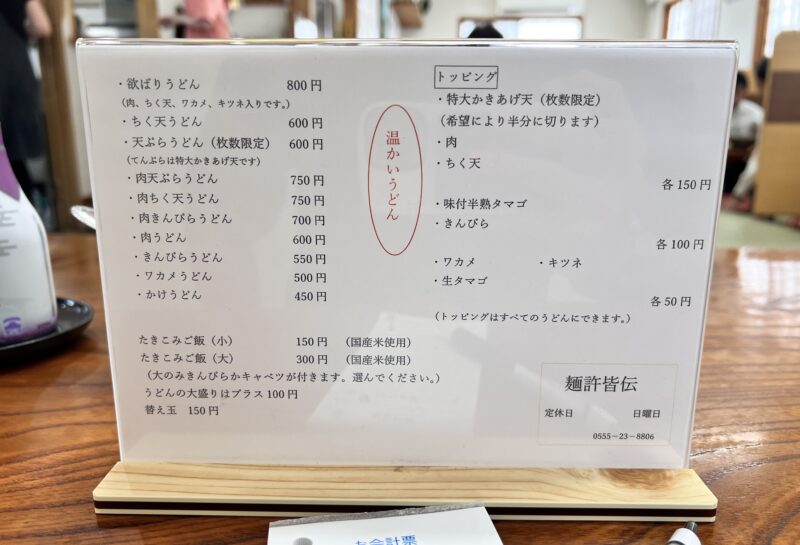 ・欲ばりうどん 800円
(肉、ちく天、ワカメ、キツネ入りです。)
・ちく天うどん 600円
・天ぷらうどん（枚数限定） 600円
(てんぷらは特大かきあげ天です)
・肉天ぷらうどん 750円
・肉ちく天うどん 750円
・肉きんぴらうどん 700円
・肉うどん 600円
・きんぴらうどん 550円
・ワカメうどん 500円
・かけうどん 450円
たきこみご飯（小） 150円 （国産米使用）
たきこみご飯（大） 300円 （国産米使用）
（大のみきんぴらかキャベツが付きます。選んでください。）
うどんの大盛りはプラス100円
替え玉 150円
温かいうどん
トッピング
・特大かきあげ天（枚数限定）
（希望により半分に切ります）
・肉
・ちく天
各150円
・味付半熟タマゴ
・きんぴら
各100円
・ワカメ ・キツネ
・生タマゴ
各50円
（トッピングはすべてのうどんにできます。）
麺許皆伝
定休日 日曜日
0555－23－8806
お会計票